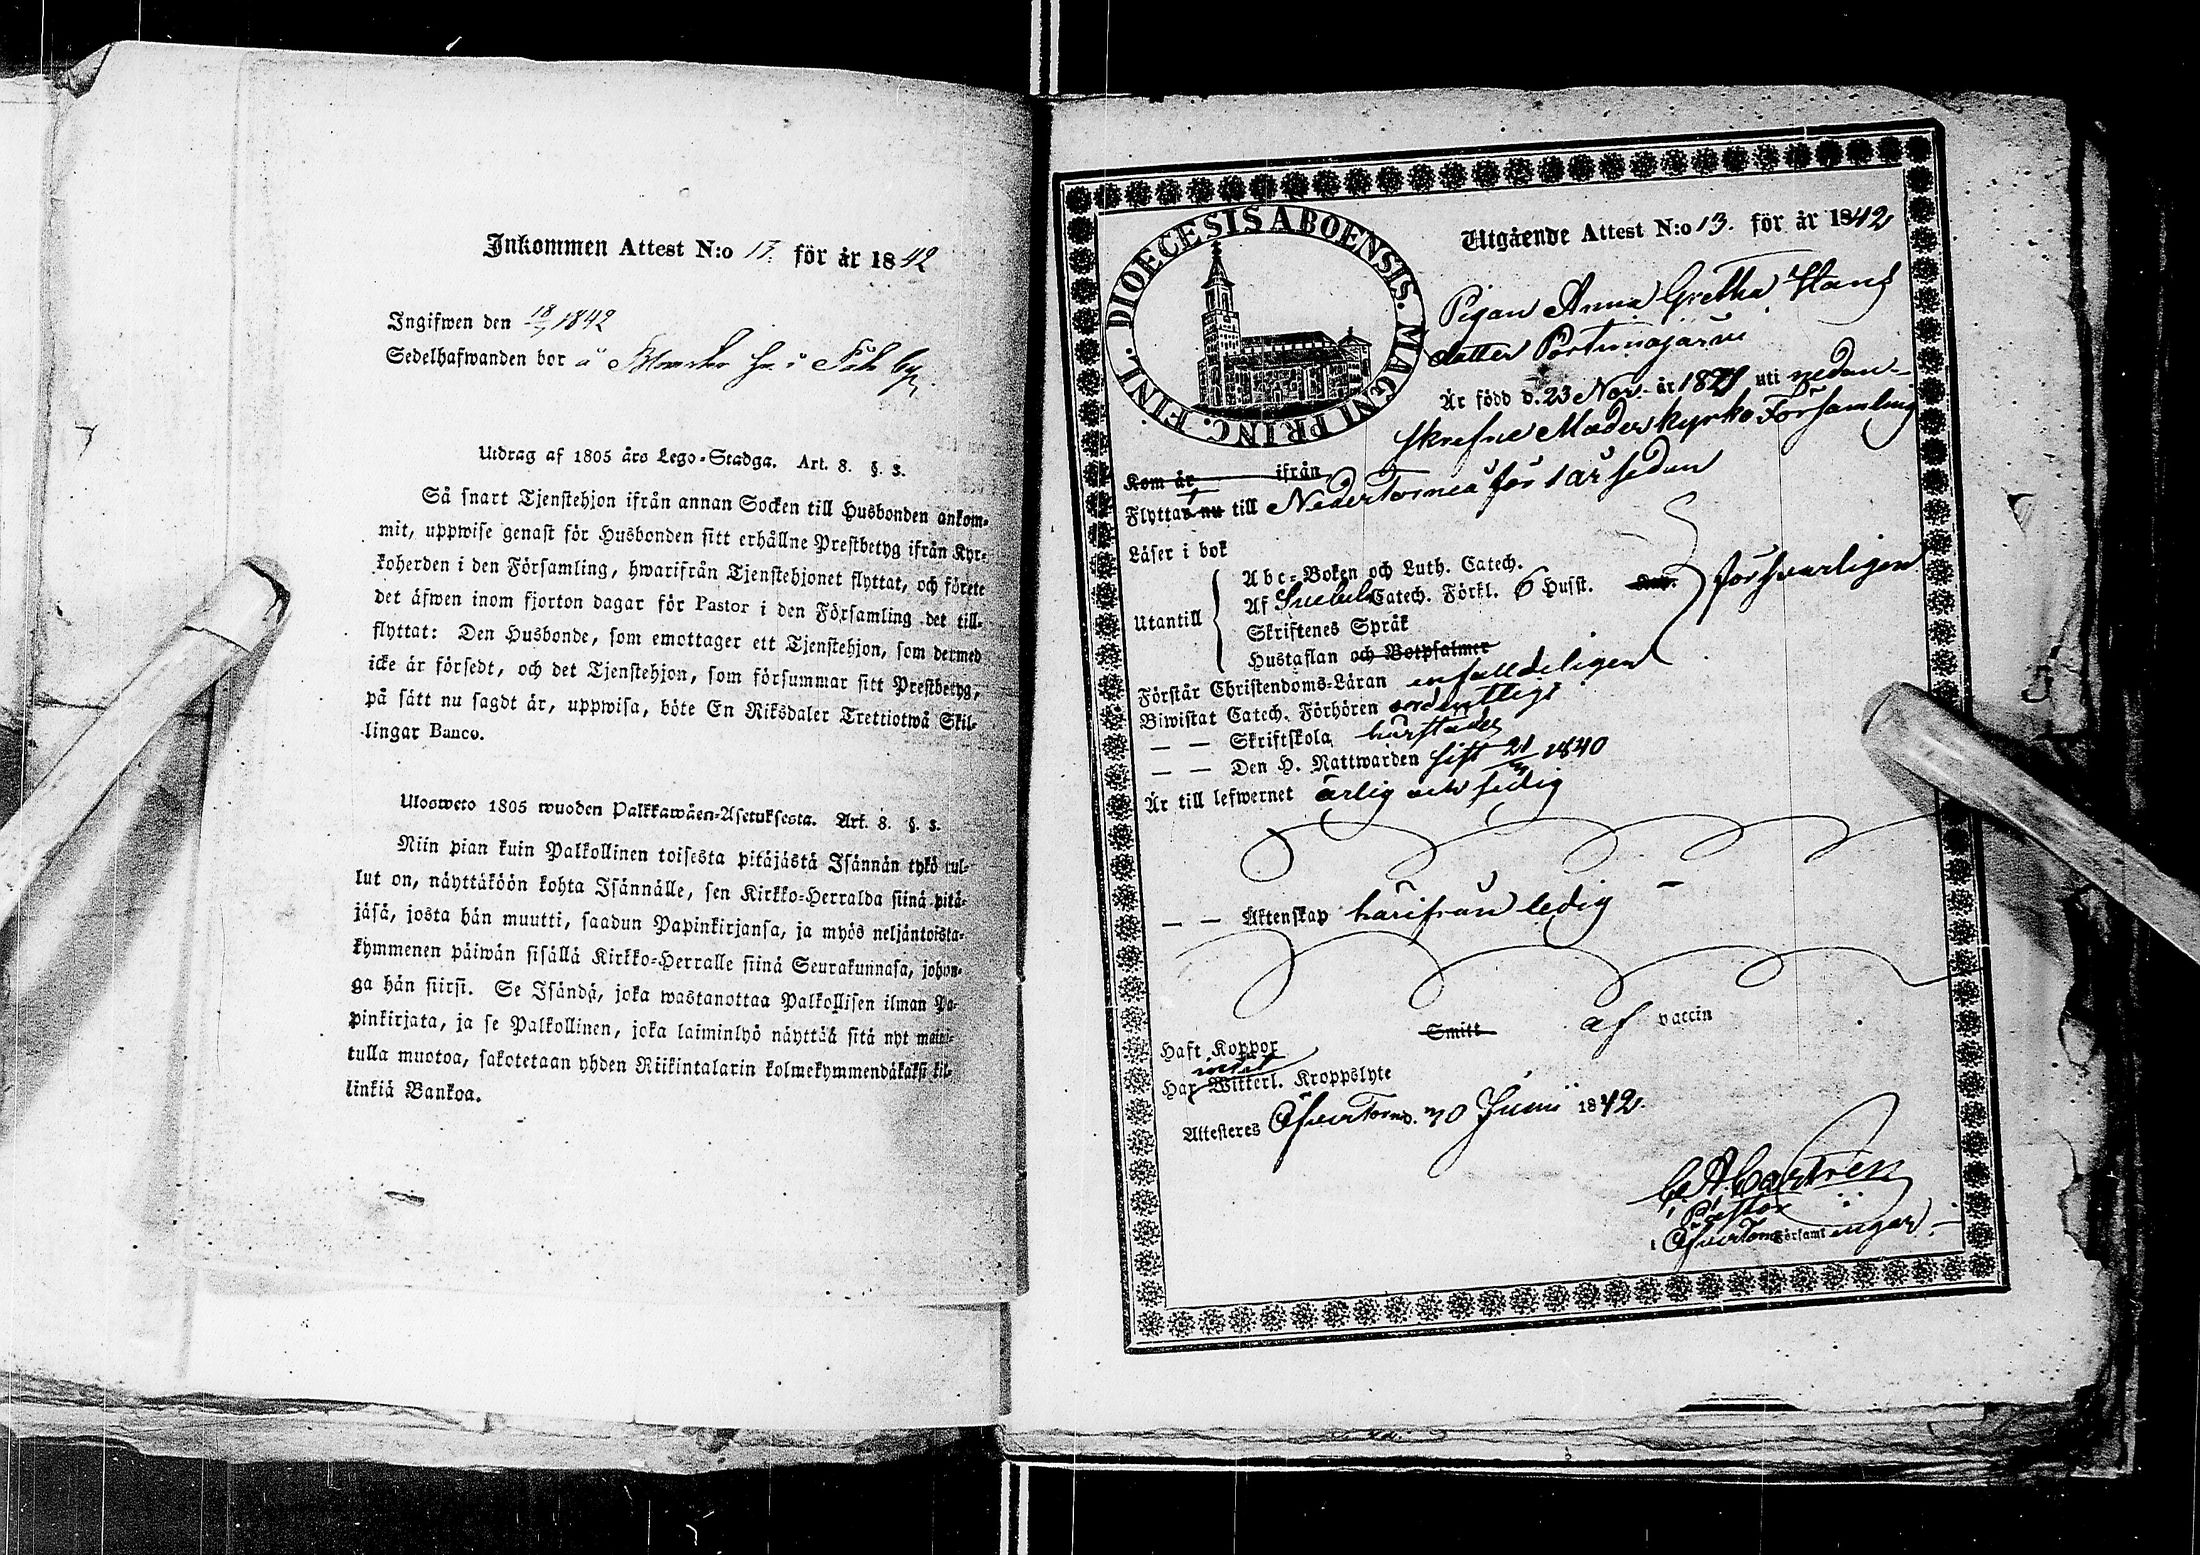 Inkommen Attest N:o 13. för år 1842
Ingifwen den 18/7 1842
Sedelhafwanden bor å
Utdrag af 1805 års Lego-Stadga. Art. 8. §. 3.
Så snart Tjenstehjon ifrån annan Socken till Husbonden ankom-
mit, uppwise genast för Husbonden sitt erhållne Prestbetyg ifrån Kyr-
koherden i den Församling, hwarifrån Tjenstehjonet flyttat, och förete
det äfwen inom fjorton dagar för Pastor i den Församling det till-
flyttat: Den Husbonde, som emottager ett Tjenstehjon, som dermed
icke är försedt, och det Tjenstehjon, som försummar sitt Prestbetyg,
på sätt nu sagdt är, uppwisa, böte En Riksdaler Trettiotwå Skil-
lingar Banco.
Ulosweto 1805 wuoden Palkkawäen-Asetuksesta. Art. 8. §. 3.
Niin pian kuin Palkollinen toisesta pitäjästä Isännän tykö tul-
lut on, näyttäköön kohta Isännälle, sen Kirkko-Herralda siinä pitä-
jäsä, josta hän muutti, saadun Papinkirjansa, ja myös neljäntoista-
kymmenen päiwän sisällä Kirkko-Herralle siinä Seurakunnasa, johon-
ga hän siirsi. Se Isändä, joka wastanottaa Palkollisen ilman Pa-
pinkirjata, ja se Palkollinen, joka laiminlyö näyttää sitä nyt maini-
tulla muotoa, sakotetaan yhden Riikintalarin kolmekymmendäkaksi kil-
linkiä Bankoa.
DIOECESIS ABOENSIS. MAGNI PRINC. FINL.
Utgående Attest N:o 13. för år 1842
Pigan Anna Gretha Hans
datter Portimojärvi
Är född d. 23 Nov. år 1821 uti nedan-
skrefne Moderkyrko Församling
Kom år ifrån
Flyttar nu till Nedertorneå för 1 år sedan
Läser i bok
Utantill
Abc-Boken och Luth. Catech.
Af Svebel. Catech. Förkl. 6 Husst.
Skriftenes Språk
Hustaflan och Botpsalmer
försvarligen
Förstår Christendoms-Läran enfalldeligen
Biwistat Catech. Förhören ordentligt
— — Skriftskola härstädes
— — Den H. Nattwarden sist 21/3 1840
Är till lefwernet ärlig och sedig
— — Äktenskap härifrån ledig —
Haft Koppor Smitt af vaccin
Har Witterl. Kroppslyte intet
Attesteres Öfvertorneå. 30 Junii 1842.
C. A. Castrén
Pastor
i Öfvertorneå Församlingar.